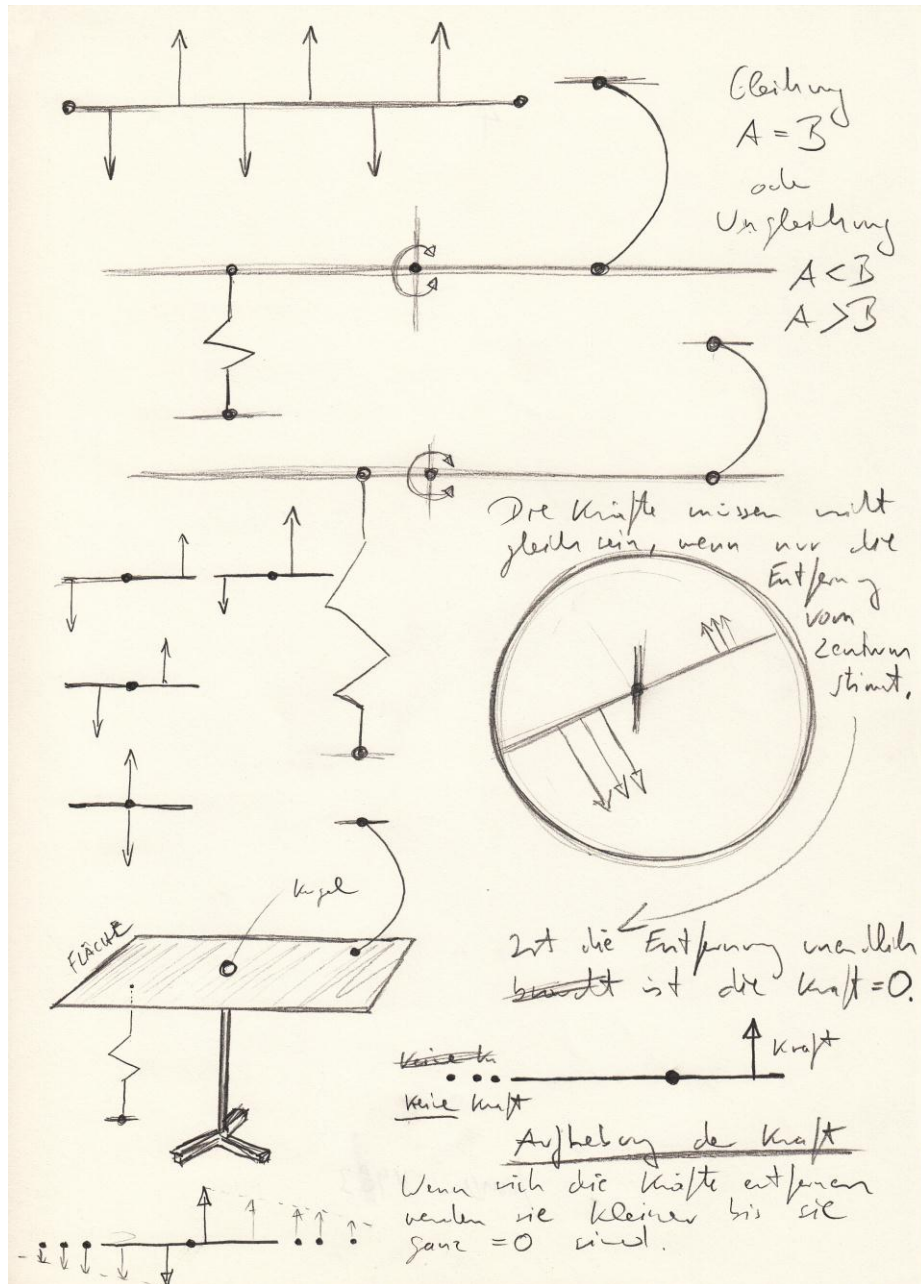 Gleichung
A = B
oder
Ungleichung
A < B
A > B
Die Kräfte müssen nicht
gleich sein, wenn nur die
Entfernung
vom
Zentrum
stimmt.
Kugel
FLÄCHE
Ist die Entfernung unendlich
braucht ist die Kraft = 0.
Kraft
Keine K
Keine Kraft
Aufhebung der Kraft
Wenn sich die Kräfte entfernen
werden sie kleiner bis sie
ganz = 0 sind.